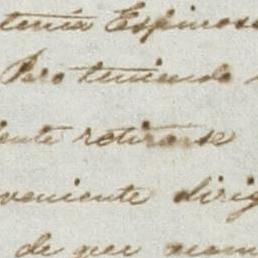 tenia Espinosa
Pero teniendo
iente retirarse
veniente dirig
de que